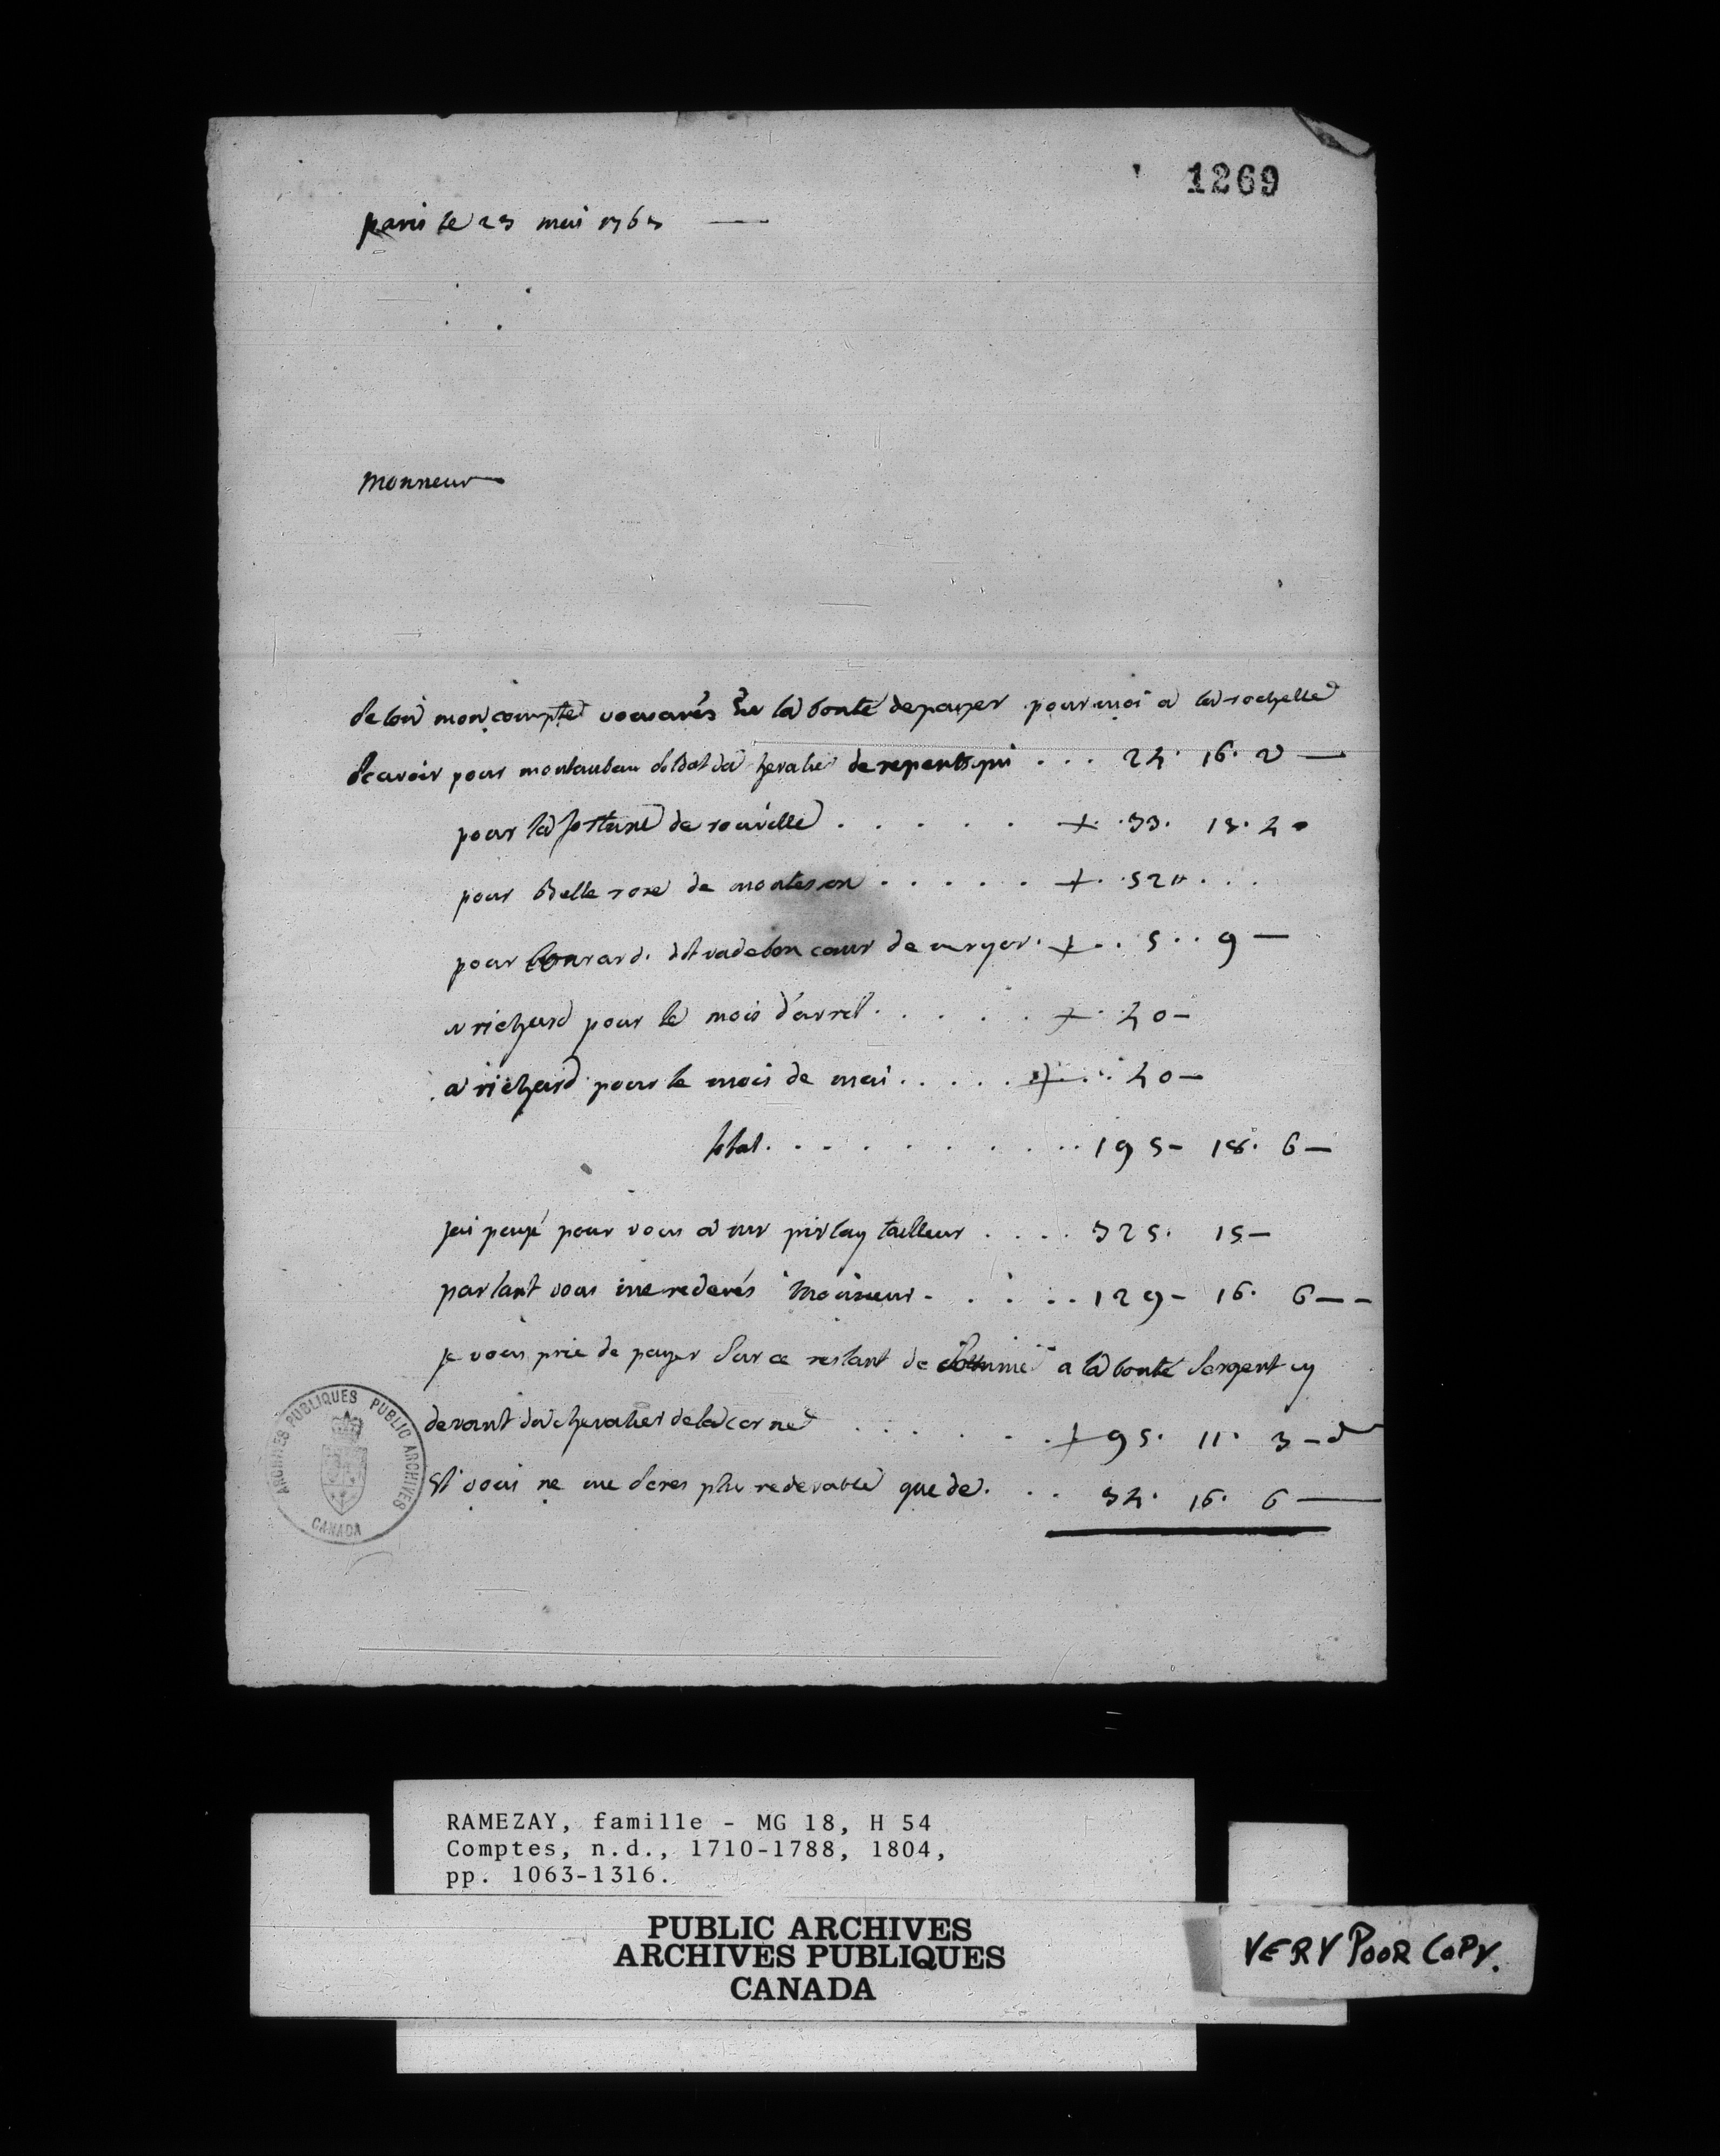 1269
paris le 23 mai 1763
Monsieur
selon mon compte vous avés eu la bonté de payer pour moi a la rochelle
scavoir pour montauban soldat du chevalier de repentigni . . . 24. 16. 2
pour la fortune de rouville . . . . . + . 33. 13. 4
pour Belle rose de monteson . . . . . + . 52 # . . .
pour dit vadeboncœur de . + . . 5 . . 9
a richard pour le mois d'avril . . . . . + . 40
a richard pour le mois de mai . . . . . + . . 40
total . . . . . . . . . . 195 - 18. 6
jai payé pour vous a mr pirlay tailleur . . . . 325. 15
partant vous me redevés Monsieur . . . . . 129 - 16. 6
je vous prie de payer sur ce restant de somme a la bonté sergent cy
devant du chevalier de la corne . . . . . . + 95. 11. 3 - d
Et vous ne me serés plus redevable que de . . . 34. 16. 6
ARCHIVES PUBLIQUES PUBLIC ARCHIVES
CANADA
RAMEZAY, famille - MG 18, H 54
Comptes, n.d., 1710-1788, 1804,
pp. 1063-1316.
PUBLIC ARCHIVES
ARCHIVES PUBLIQUES
CANADA
VERY POOR COPY.